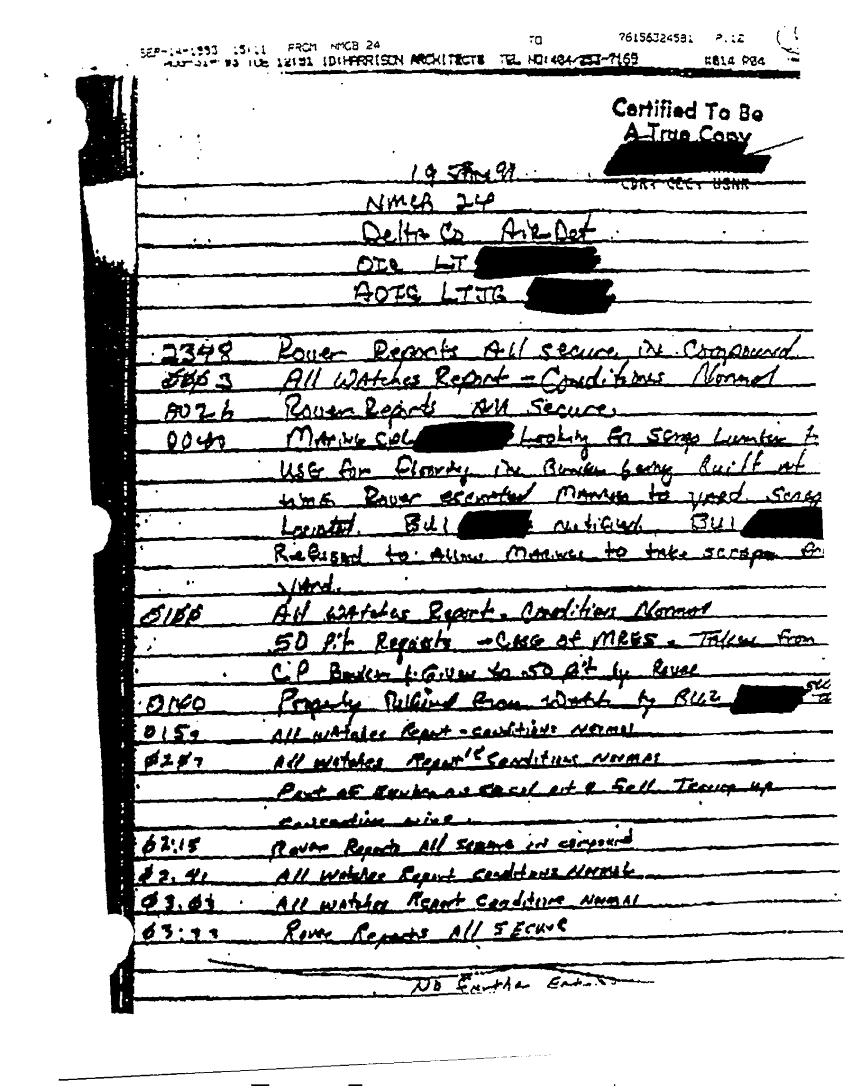 SEP-14-1993 15:11 FROM NMCB 24 TO 76156324581 P.12
TUE 12:51 ID:HARRISON ARCHITECTS TEL NO:404/253-7169 P04
Certified To Be
A True Copy
CDR, CEC, USNR
19 JAN 91
NMCB 24
Delta Co Air Det
OIC LT
AOIC LTJG
2348 Rover Reports All secure in compound
0003 All Watches Report - Conditions Normal
0026 Rover Reports All Secure
0040 Marine CPL Looking for scrap Lumber
use for flooring in Bunker being Built at
Rover escorted Marines to yard. Scrap
Located. BU1 notified. BU1
Refused to Allow Marines to take scraps
yard.
0100 All Watches Report. Conditions Normal
.50 Pit Reports - Case of MRES - Taken from
CP Bunker & Given to .50 pit by Rover
0140 Property from watch by BU2
All watches Report - conditions normal
All watches Report Conditions Normal
Part of Bunker
02:15 Rover Reports All secure in compound
02:41 All Watches Report conditions Normal
All watches Report Conditions Normal
03:33 Rover Reports All SECURE
No Further